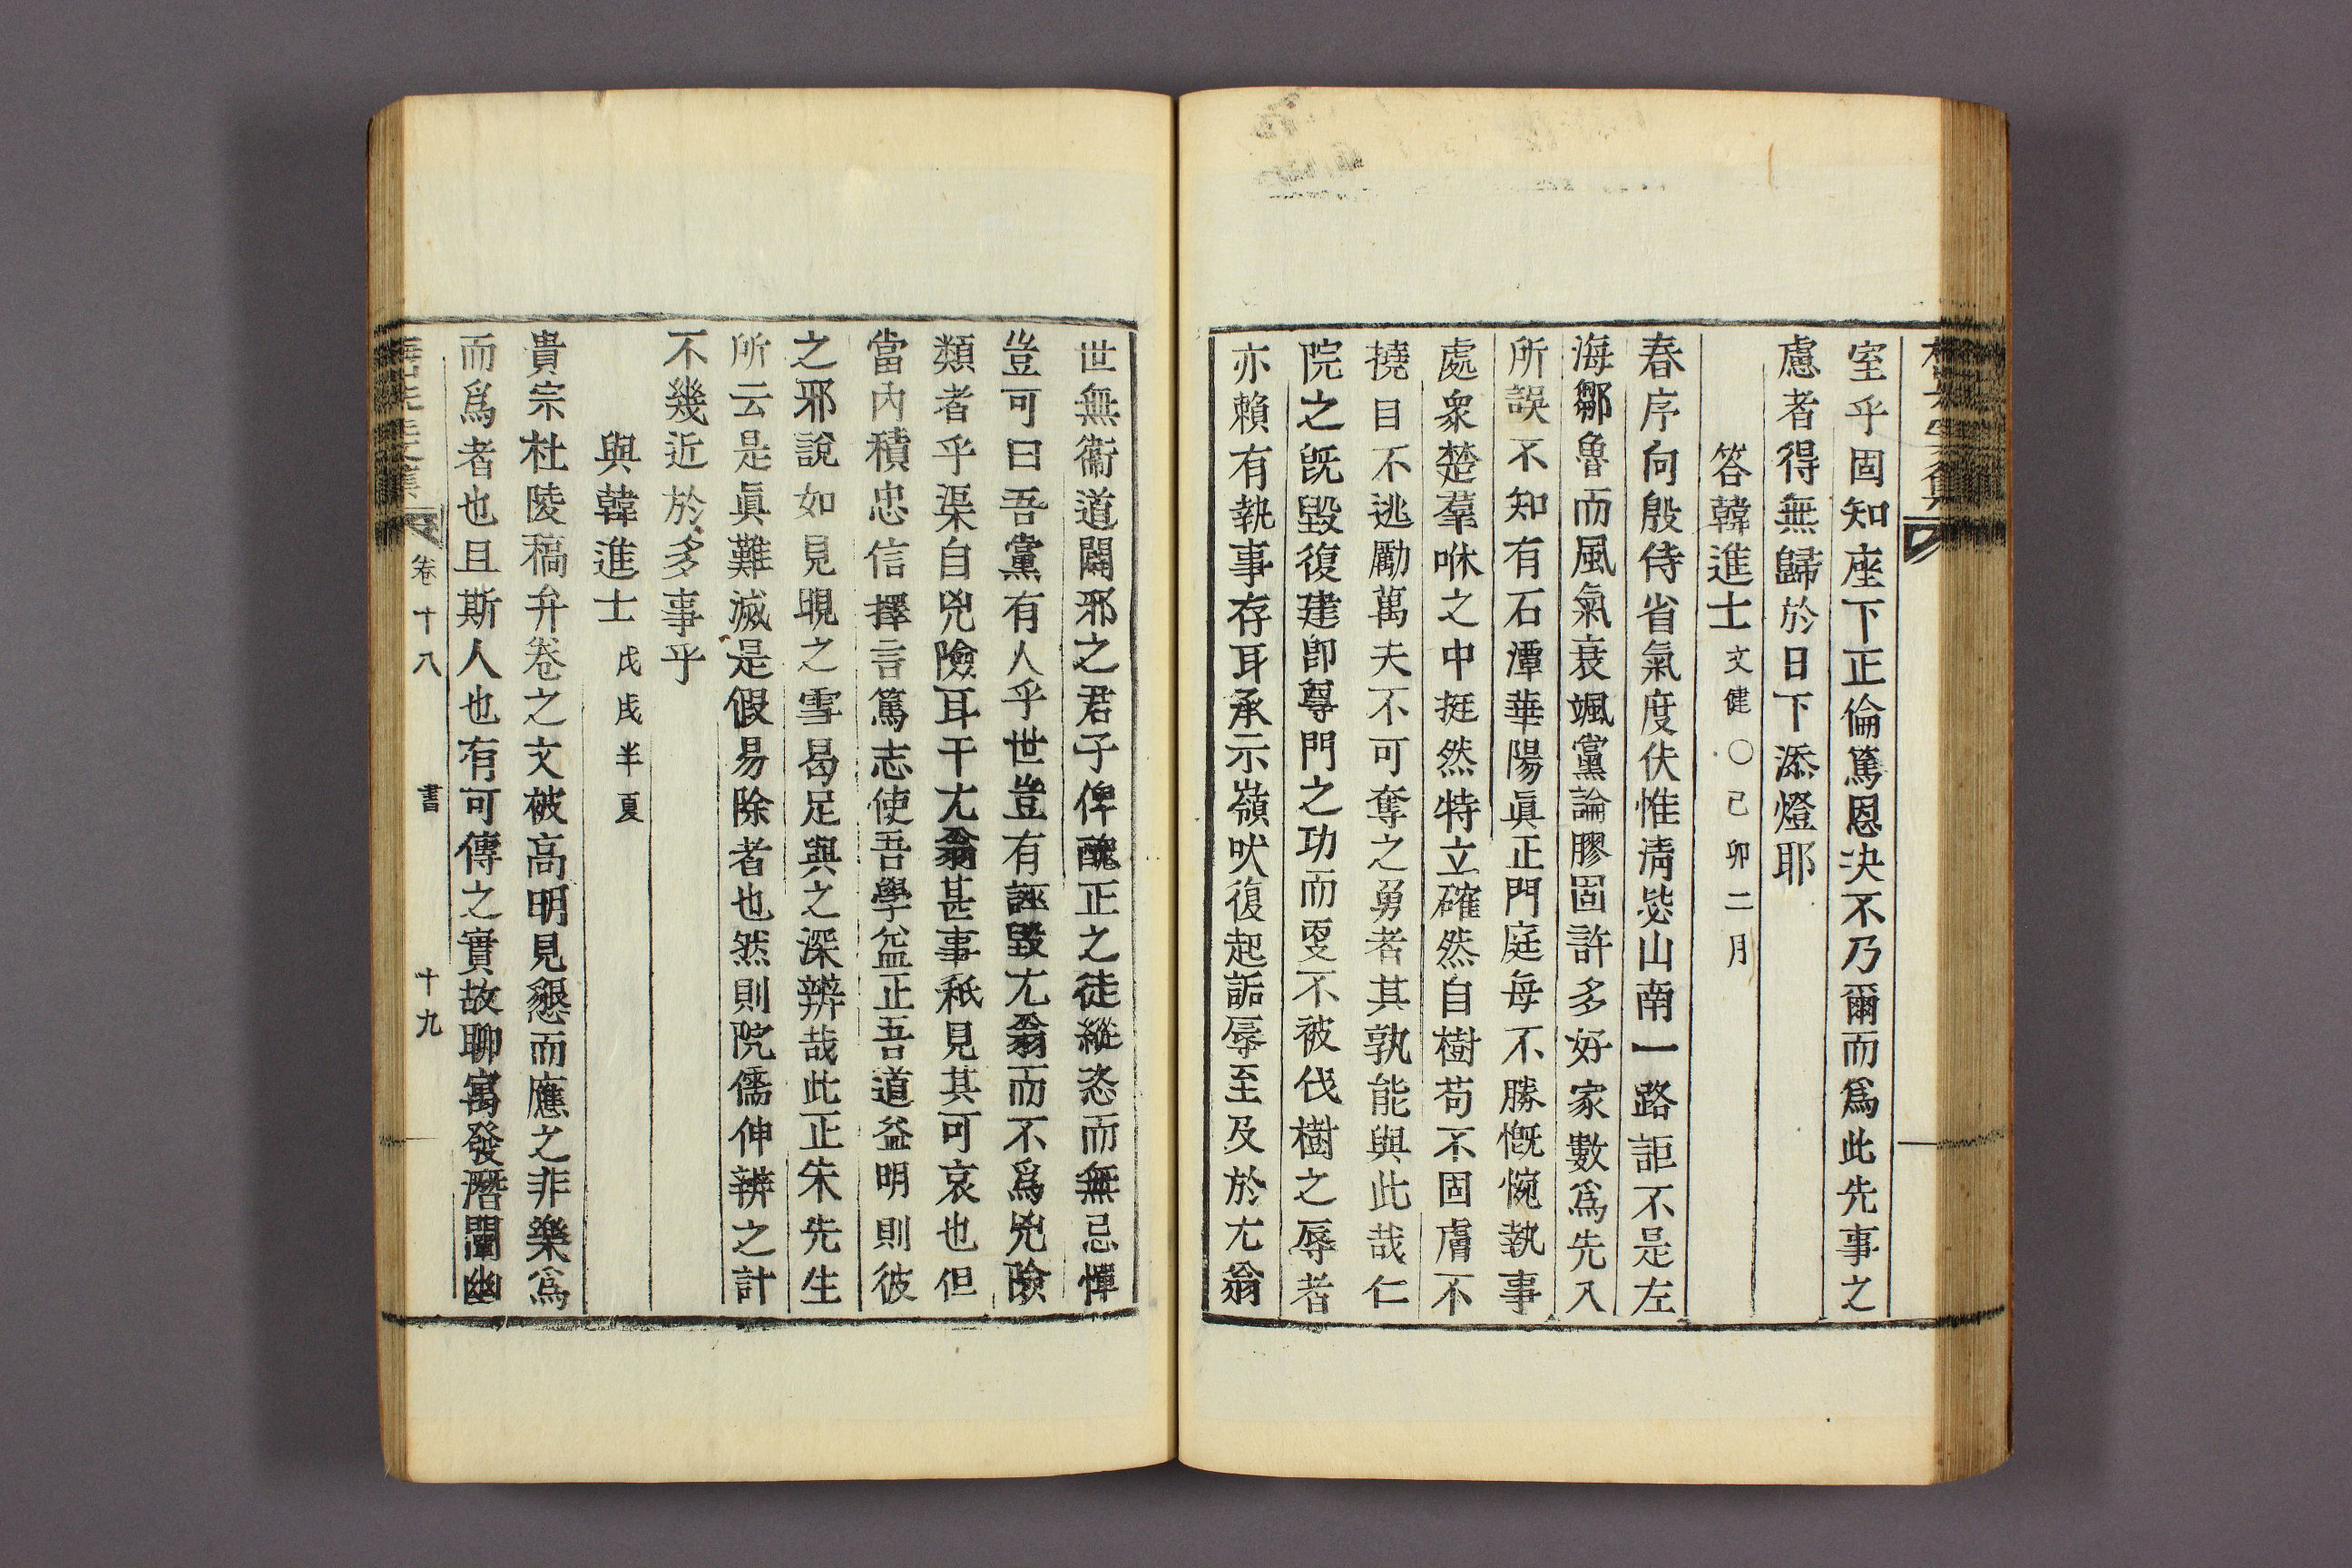 室乎固知座下正倫篤恩決不乃爾而爲此先事之
慮者得無歸於日下添燈耶
答韓進士文健○己卯二月
春序向殷侍省氣度伏惟淸毖山南一路詎不是左
海鄒魯而風氣衰颯黨論膠固許多好家數爲先入
所誤不知有石潭華陽眞正門庭每不勝慨惋執事
處衆楚羣咻之中挺然特立確然自樹苟不固膚不
撓目不逃勵萬夫不可奪之勇者其孰能與此哉仁
院之旣毁復建卽尊門之功而雯不被伐樹之辱者
亦賴有執事存耳承示嶺吠復起詬辱至及於尤翁
世無衞道闢邪之君子俾醜正之徒縱恣而無忌憚
豈可曰吾黨有人乎世豈有誣毁尤翁而不爲兇險
類者乎渠自兇險耳干尤翁甚事秖見其可哀也但
當內積忠信擇言篤志使吾學益正吾道益明則彼
之邪說如見晛之雪曷足與之深辨哉此正朱先生
所云是眞難滅是假易除者也然則院儒伸辨之計
不幾近於多事乎
與韓進士戊戌半夏
貴宗杜陵稿弁卷之文被高明見懇而應之非樂爲
而爲者也且斯人也有可傳之實故聊寓發潛闡幽
卷十八 書 十九